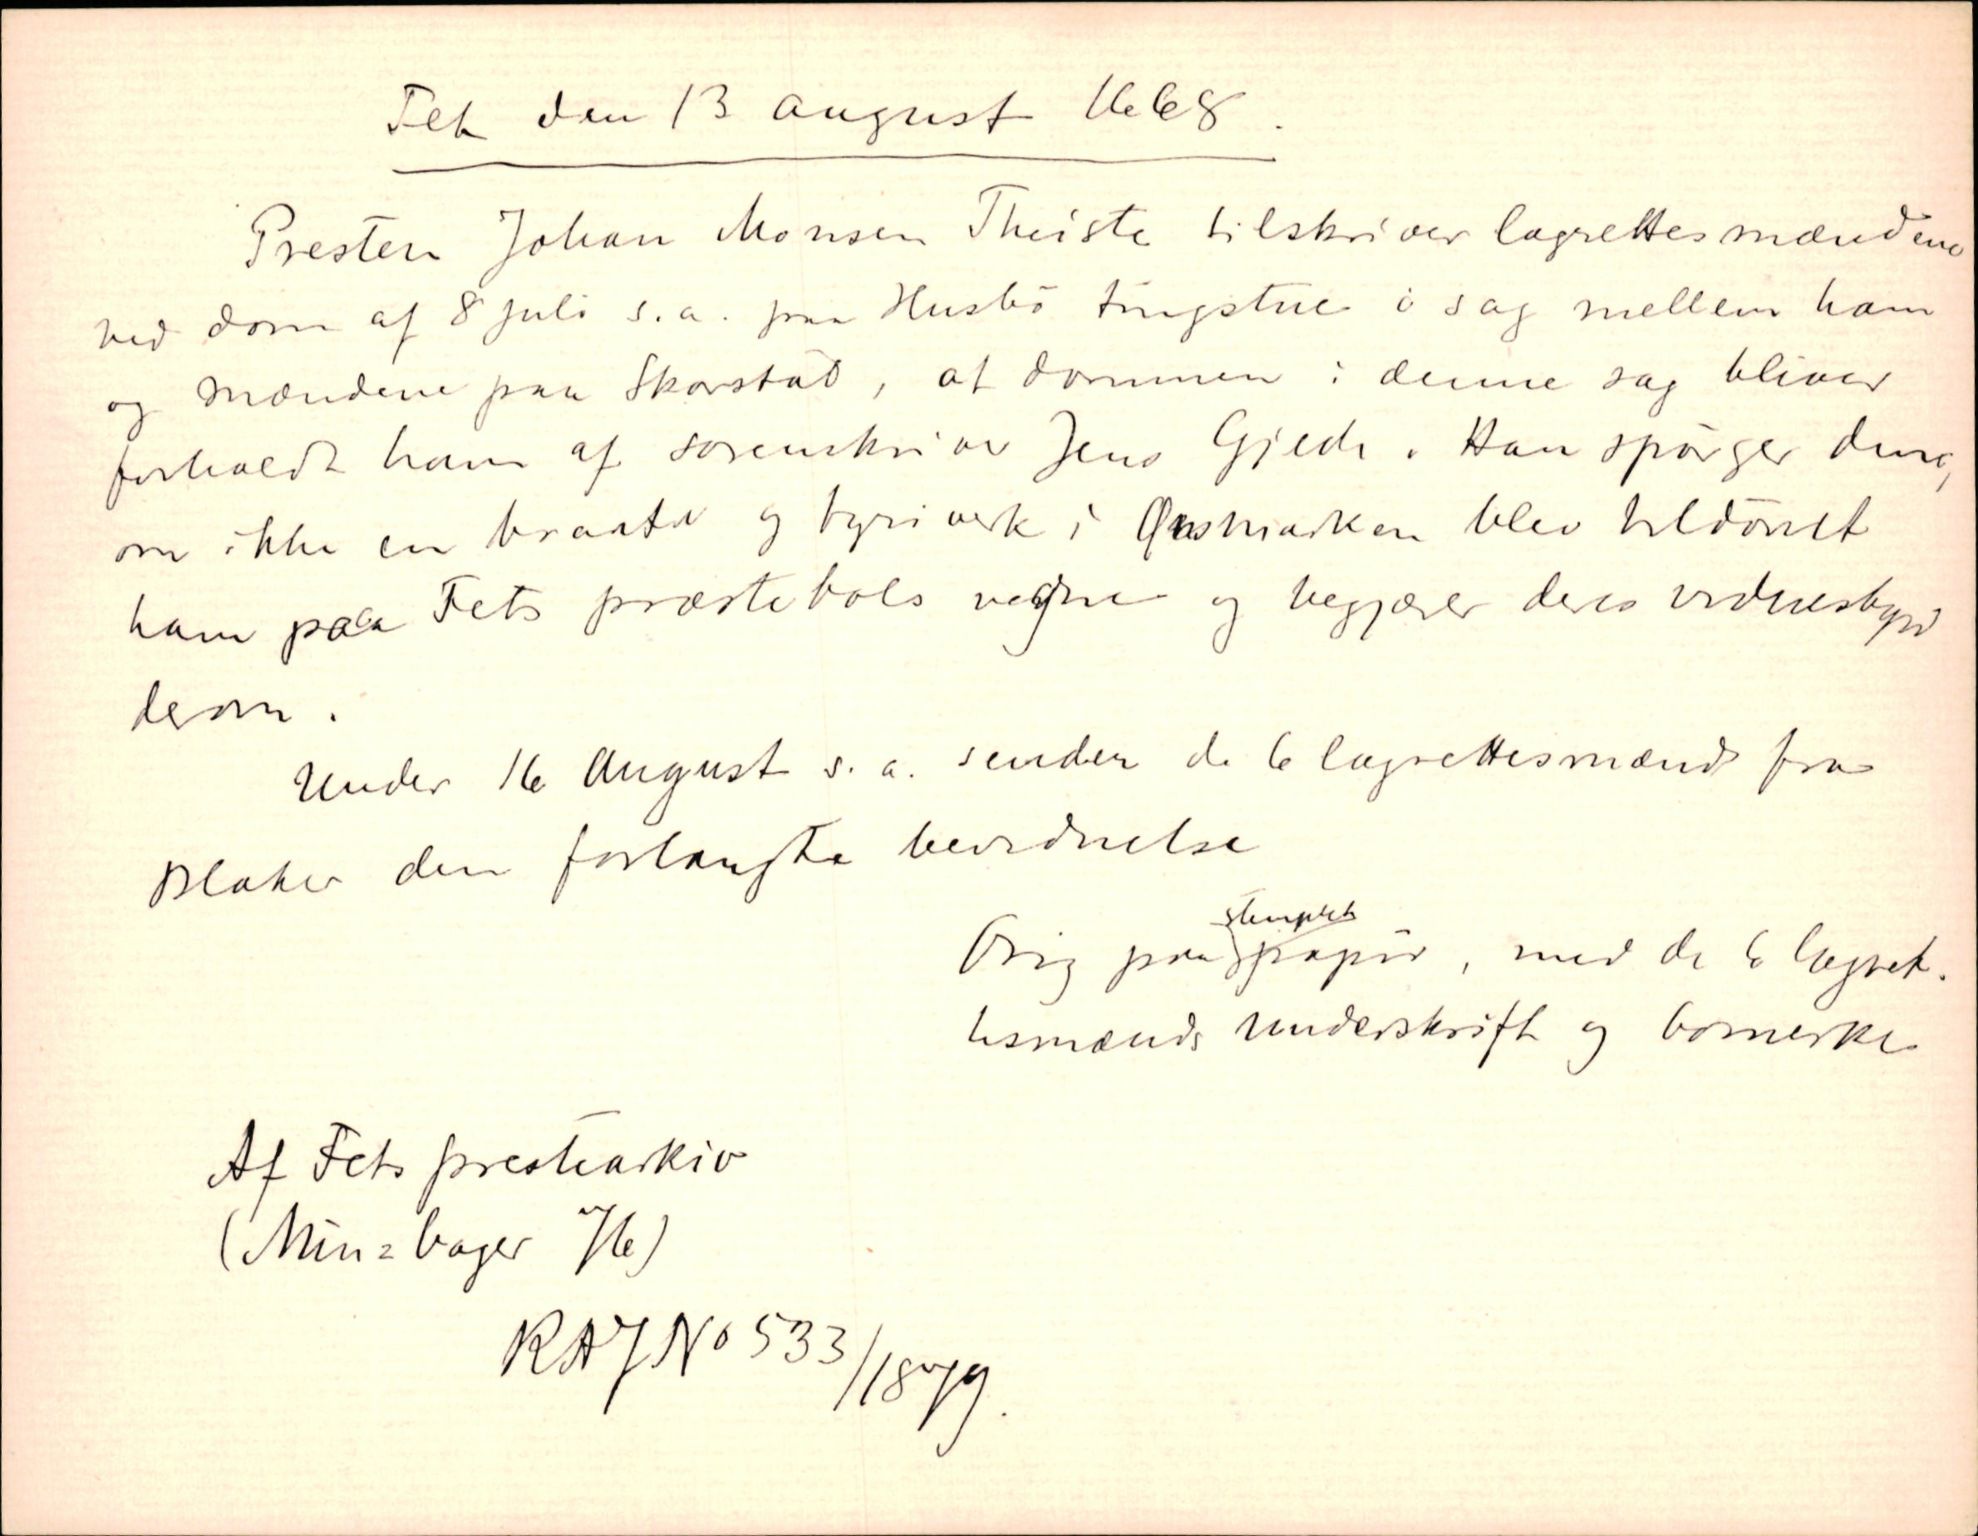 Fet den 13 august 1668.
Presten Johan Monsen Theiste tilskriver lagrettesmændene
ved dom af 8 juli s.a. paa Husbö tingstue i sag mellem ham
og mændene paa Skorstad, at dommen i denne sag bliver
forholdt ham af sorenskriver Jens Gjede. Han spörger dem,
om ikke en braate og tyriverk i marken blev tildömt
ham paa Fets præstebols vegne og begjærer deres vidnesbyrd
derom.
Under 16 August s. a. sender de 6 lagrettesmænd fra
Blaker den forlangte bevidnelse
Orig paa stemplet papir, med de 6 lagret-
tesmænds underskrift og bomerke
Af Fets prestearkiv
(Min = bager 76)
RAJ No 533/1879.